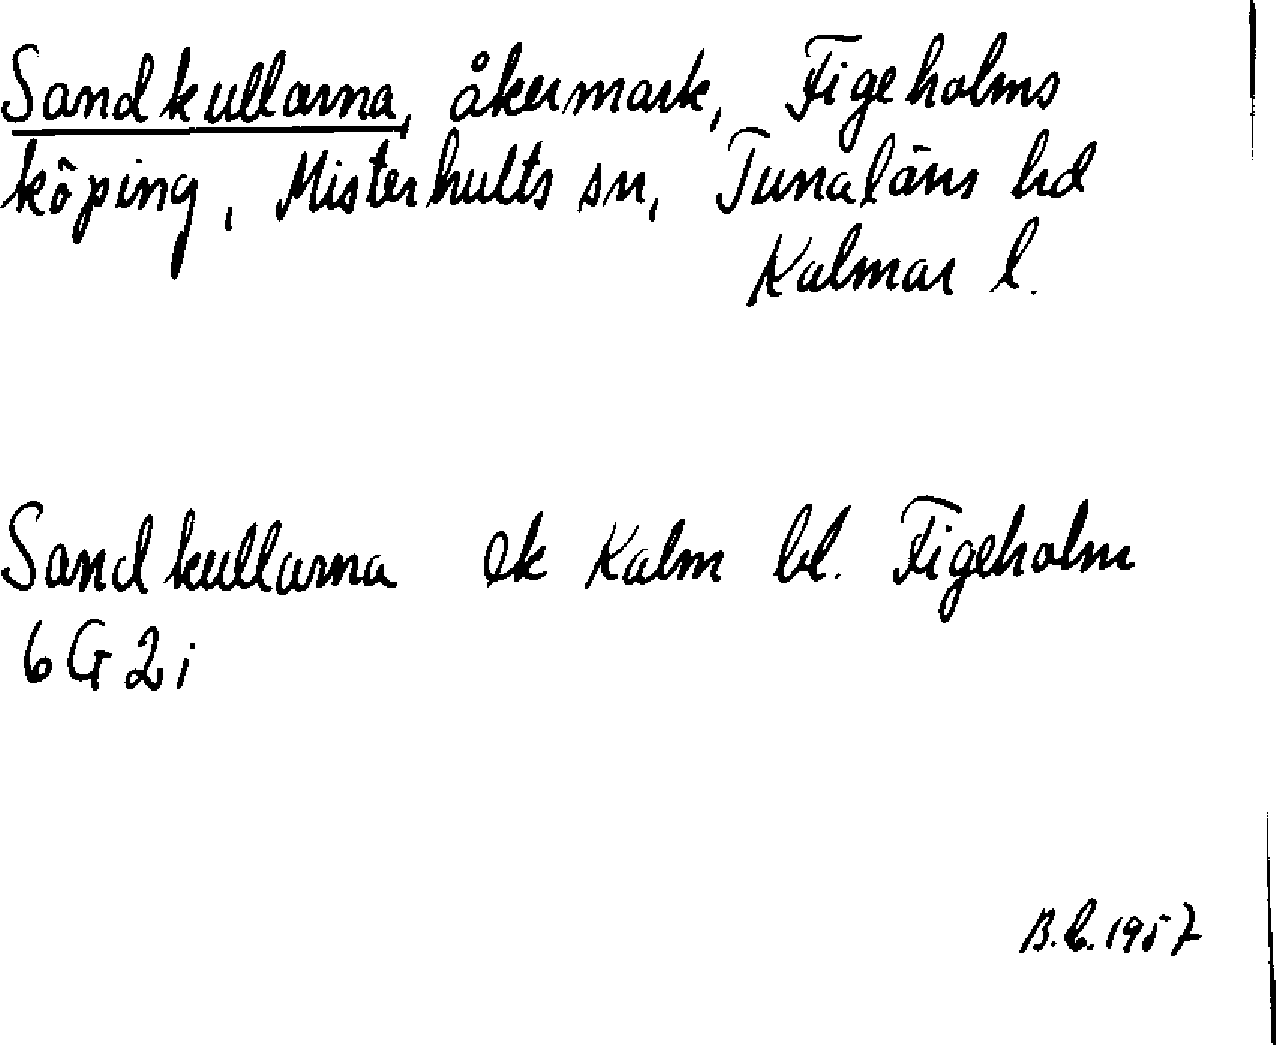 Sandkullarna, åkermark, Figeholms
köping, Misterhults sn, Tunaläns hd
Kalmar l.
Sandkullarna ek Kalm bl. Figeholm
6G2i
B.L. 1957